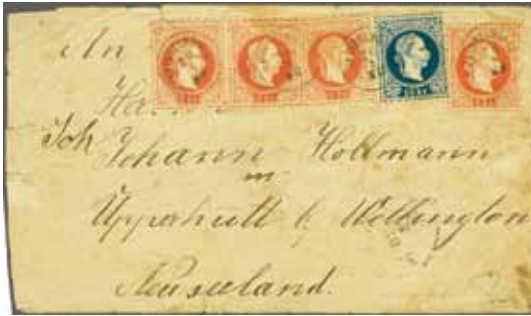 An
Joh Johann Hollmann
in
Upperhutt b/ Wellington
Neuseeland.